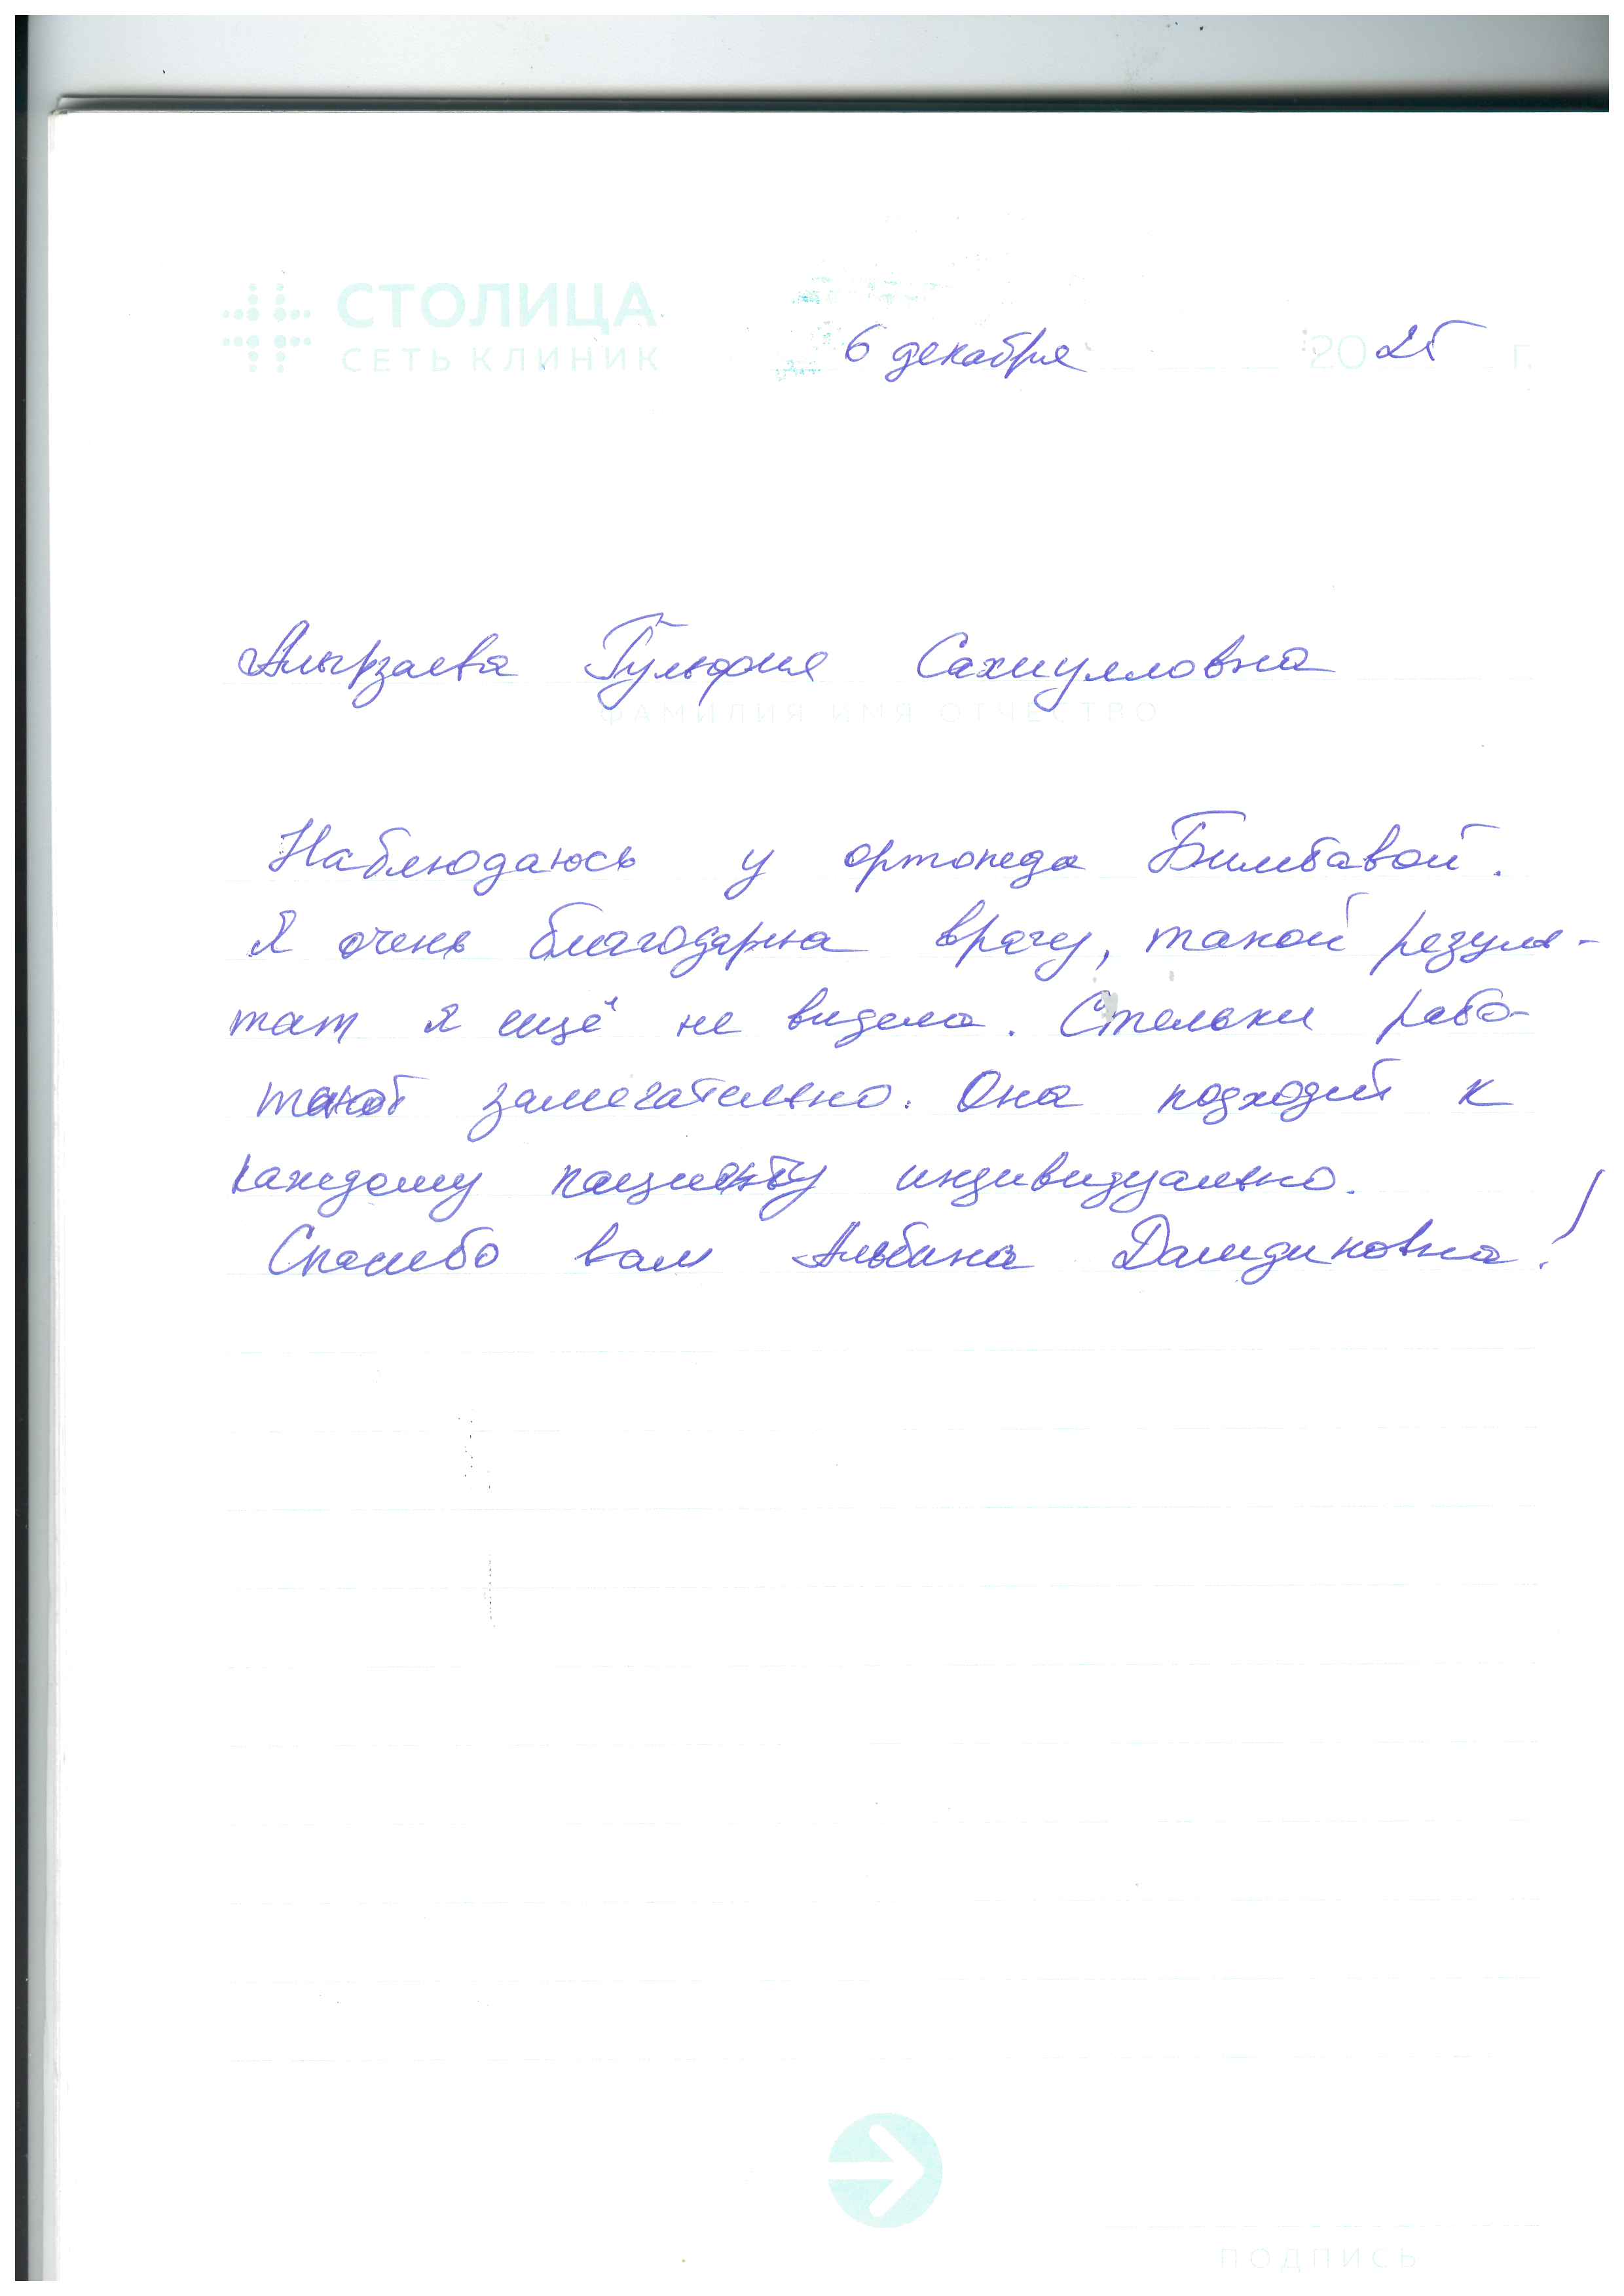 СТОЛИЦА
СЕТЬ КЛИНИК
6 декабря 2025 г.
Алырзаева Гульфия Сахиулловна
ФАМИЛИЯ ИМЯ ОТЧЕСТВО
Наблюдаюсь у ортопеда Бимбавой.
Я очень благодарна врачу, такой резуль-
тат я ещё не видела. Стельки рабо-
тают замечательно. Она подходит к
каждому пациенту индивидуально.
Спасибо вам Альбина Дамдиновна!
ПОДПИСЬ